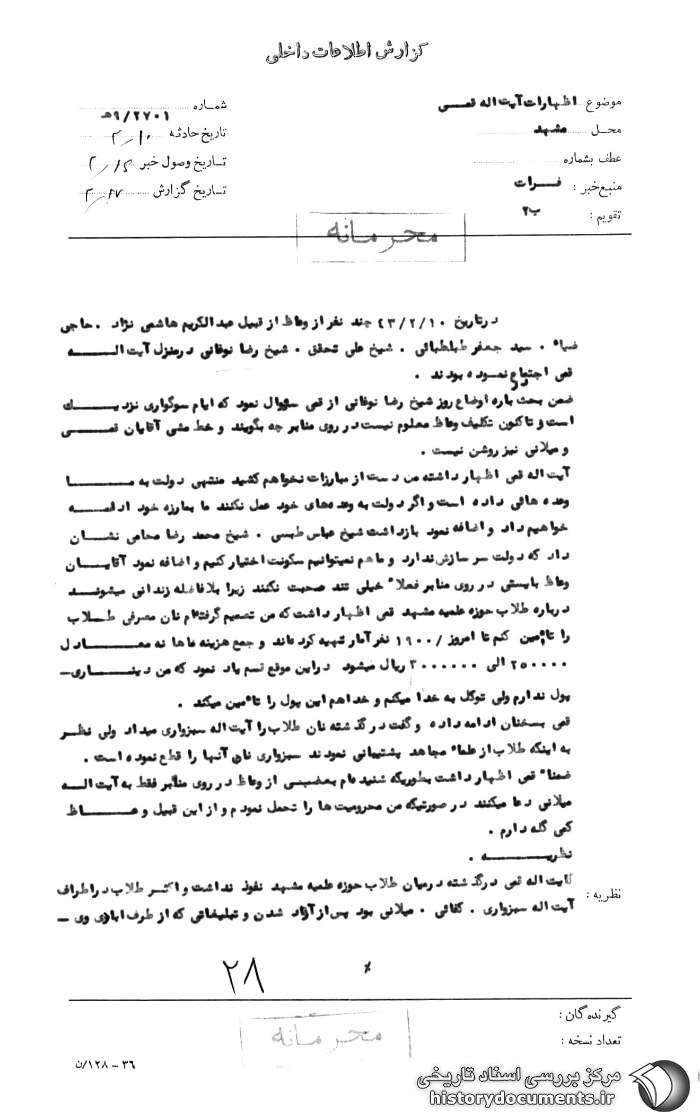 گزارش اطلاعات داخلی
موضوع اظهارات آیت اله قمی
شماره ۹/۲۷۰۱هـ
محل مشهد
تاریخ حادثه ۲/۱۰
عطف بشماره
تاریخ وصول خبر ۲/۱۵
منبع خبر : فرات
تاریخ گزارش ۲/۱۷
تقویم : ب۲
محرمانه
در تاریخ ۴۳/۲/۱۰ چند نفر از وعاظ از قبیل عبدالکریم هاشمی نژاد . حاجی
ضیاء . سید جعفر طباطبائی . شیخ علی تحقق . شیخ رضا نوغانی در منزل آیت الــــه
قمی اجتماع نموده بودند .
ضمن بحث در باره اوضاع روز شیخ رضا نوغانی از قمی سؤوال نمود که ایام سوگواری نزدیـــك
است و تاکنون تکلیف وعاظ معلوم نیست در روی منابر چه بگویند و خط مشی آقایان قمـــی
و میلانی نیز روشن نیست .
آیت اله قمی اظهار داشته من دست از مبارزات نخواهم کشید منتهی دولت به مـــا
وعده هائی داده است و اگر دولت به وعده‌های خود عمل نکند ما بمبارزه خود ادامـــه
خواهیم داد و اضافه نمود بازداشت شیخ عباس طبسی . شیخ محمد رضا محامی نشـــان
داد که دولت سر سازش ندارد و ما هم نمیتوانیم سکونت اختیار کنیم و اضافه نمود آقایـــان
وعاظ بایستی در روی منابر فعلا" خیلی تند صحبت نکنند زیرا بلافاصله زندانی میشونـــد
درباره طلاب حوزه علمیه مشهد قمی اظهار داشت که من تصمیم گرفته‌ام نان مصرفی طـــلاب
را تأمین کنم تا امروز /۱۹۰۰ نفر آمار تهیه کرده‌اند و جمع هزینه ماهانه معـــادل
۲۵۰۰۰۰ الی ۳۰۰۰۰۰۰ ریال میشود در این موقع قسم یاد نمود که من دینـــاری-
پول ندارم ولی توکل به خدا میکنم و خدا هم این پول را تأمین میکند .
قمی بسخنان ادامه داده و گفت در گذشته نان طلاب را آیت اله سبزواری میداد ولی نظـر
به اینکه طلاب از علماء مجاهد پشتیبانی نمودند سبزواری نان آنها را قطع نموده است .
ضمنا" قمی اظهار داشت بطوریکه شنیده‌ام بعضـی از وعاظ در روی منابر فقط به آیت الـــه
میلانی دعا میکنند در صورتیکه من محرومیت ها را تحمل نمودم و از این قبیل وعـــاظ
کمی گله دارم .
نظریـــــه .
نظریه :
آیت اله قمی در گذشته در میان طلاب حوزه علمیه مشهد نفوذ نداشت و اکثـر طلاب در اطراف
آیت اله سبزواری . کفائی . میلانی بود پس از آزاد شدن و تبلیغاتی که از طرف ایادی وی -
۲۸
گیرندگان :
تعداد نسخه :
محرمانه
۳۶ - ۱۲۸/ن
مرکز بررسی اسناد تاریخی
historydocuments.ir